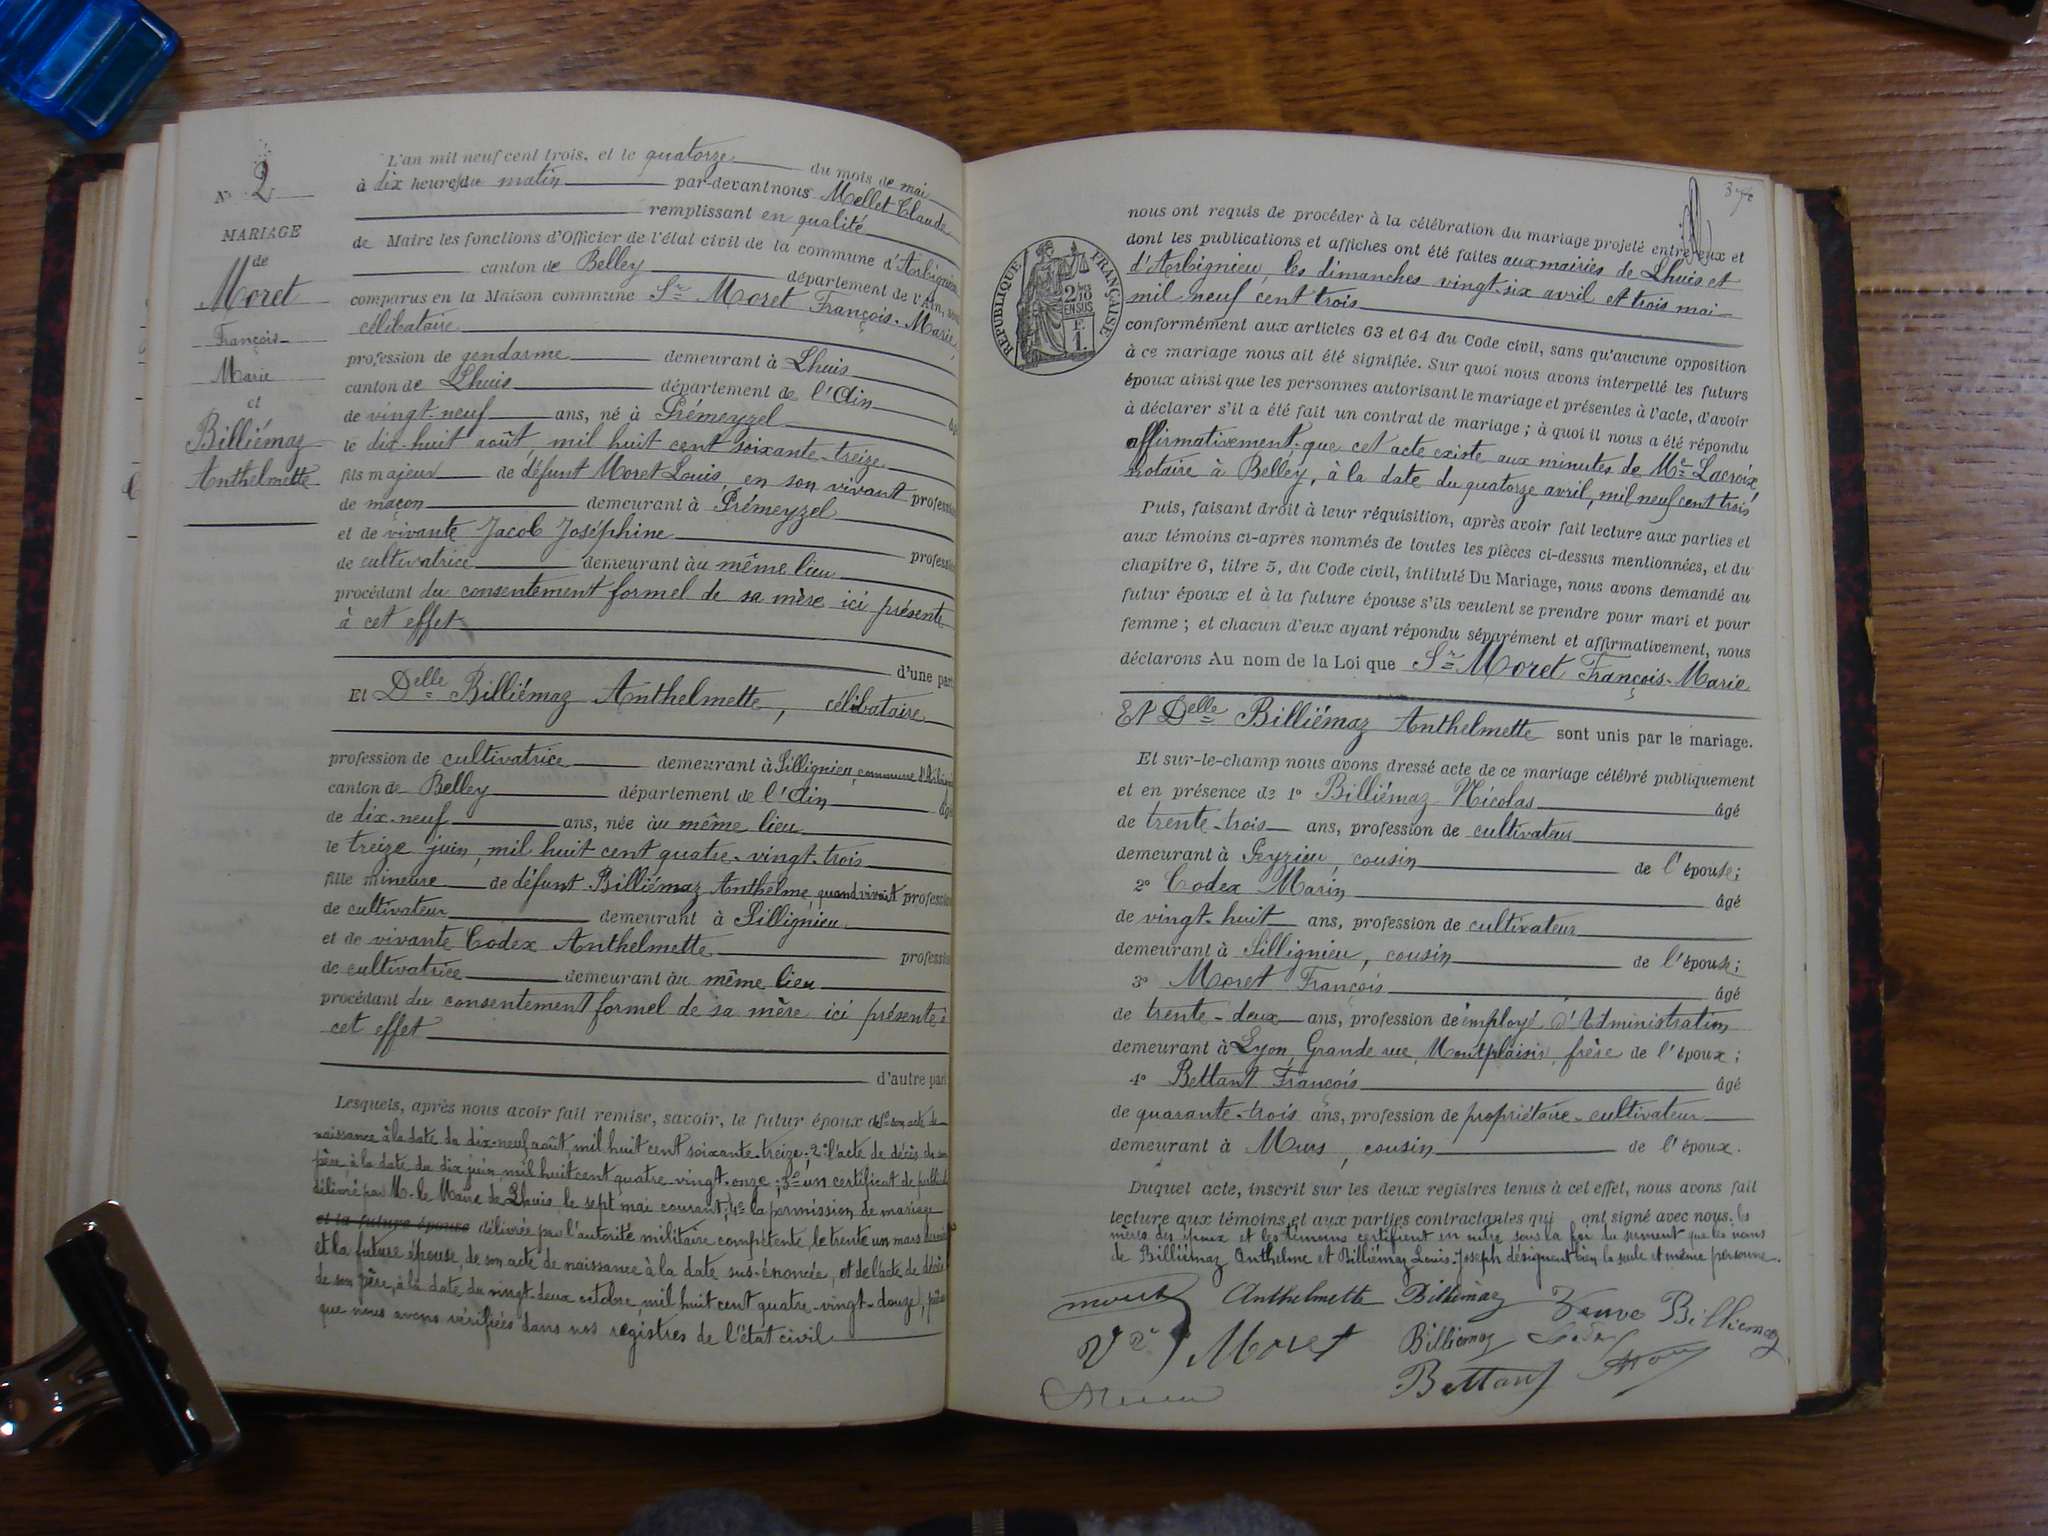 N° 2
MARIAGE
de
Moret
François-
Marie
et
Billiémaz
Anthelmette
L'an mil neuf cent trois, et le quatorze du mois de mai
à dix heures du matin par-devant nous Mellet Claude
remplissant en qualité
de Maire les fonctions d'Officier de l'état civil de la commune d'Arbignieu
canton de Belley département de l'Ain, sont
comparus en la Maison commune Sr Moret François-Marie,
célibataire
profession de gendarme demeurant à Lhuis
canton de Lhuis département de l'Ain
de vingt-neuf ans, né à Prémeyzel
le dix-huit août, mil huit cent soixante-treize
fils majeur de défunt Moret Louis, en son vivant profession
de maçon demeurant à Prémeyzel
et de vivante Jacob Joséphine profession
de cultivatrice demeurant au même lieu
procédant du consentement formel de sa mère ici présente
à cet effet
d'une part
Et Delle Billiémaz Anthelmette, célibataire
profession de cultivatrice demeurant à Sillignieu, commune d'Arbignieu
canton de Belley département de l'Ain âgée
de dix-neuf ans, née au même lieu
le treize juin, mil huit cent quatre-vingt-trois
fille mineure de défunt Billiémaz Anthelme, quand vivait profession
de cultivateur demeurant à Sillignieu
et de vivante Codex Anthelmette profession
de cultivatrice demeurant au même lieu
procédant du consentement formel de sa mère ici présente à
cet effet
d'autre part
Lesquels, après nous avoir fait remise, savoir, le futur époux de 1° son acte de
naissance à la date du dix-neuf août, mil huit cent soixante-treize; 2° l'acte de décès de son
père, à la date du dix juin, mil huit cent quatre-vingt-onze; 3° un certificat de
délivré par M. le Maire de Lhuis le sept mai courant; 4° la permission de mariage
et la future épouse délivrée par l'autorité militaire compétente, le trente un mars dernier
et la future épouse, de son acte de naissance à la date sus-énoncée, et de l'acte de décès
de son père, à la date du vingt-deux octobre, mil huit cent quatre-vingt-douze,
que nous avons vérifiées dans nos registres de l'état civil
REPUBLIQUE FRANÇAISE
2/10 EN SUS
F.
1.
nous ont requis de procéder à la célébration du mariage projeté entre eux et
dont les publications et affiches ont été faites aux mairies de Lhuis et
d'Arbignieu, les dimanches vingt-six avril et trois mai
mil neuf cent trois
conformément aux articles 63 et 64 du Code civil, sans qu'aucune opposition
à ce mariage nous ait été signifiée. Sur quoi nous avons interpellé les futurs
époux ainsi que les personnes autorisant le mariage et présentes à l'acte, d'avoir
à déclarer s'il a été fait un contrat de mariage; à quoi il nous a été répondu
affirmativement, que cet acte existe aux minutes de Me Lacroix,
notaire à Belley, à la date du quatorze avril, mil neuf cent trois
Puis, faisant droit à leur réquisition, après avoir fait lecture aux parties et
aux témoins ci-après nommés de toutes les pièces ci-dessus mentionnées, et du
chapitre 6, titre 5, du Code civil, intitulé Du Mariage, nous avons demandé au
futur époux et à la future épouse s'ils veulent se prendre pour mari et pour
femme; et chacun d'eux ayant répondu séparément et affirmativement, nous
déclarons Au nom de la Loi que Sr Moret François-Marie
Et Delle Billiémaz Anthelmette sont unis par le mariage.
Et sur-le-champ nous avons dressé acte de ce mariage célébré publiquement
et en présence de 1° Billiémaz Nicolas âgé
de trente-trois ans, profession de cultivateur
demeurant à Peyzieu, cousin de l'épouse;
2° Codex Marin âgé
de vingt-huit ans, profession de cultivateur
demeurant à Sillignieu, cousin de l'épouse;
3° Moret François âgé
de trente-deux ans, profession de employé d'Administration
demeurant à Lyon, Grande rue, Montplaisir, frère de l'époux;
4° Bettant François âgé
de quarante-trois ans, profession de propriétaire-cultivateur
demeurant à Murs, cousin de l'époux.
Duquel acte, inscrit sur les deux registres tenus à cet effet, nous avons fait
lecture aux témoins et aux parties contractantes qui ont signé avec nous. Les
mères des époux et les témoins certifient en outre sous la foi du serment que les noms
de Billiémaz Anthelme et Billiémaz Louis-Joseph désignent bien la seule et même personne.
Anthelmette Billiémaz Veuve Billiemaz
Ve Moret Billiémaz
Bettant